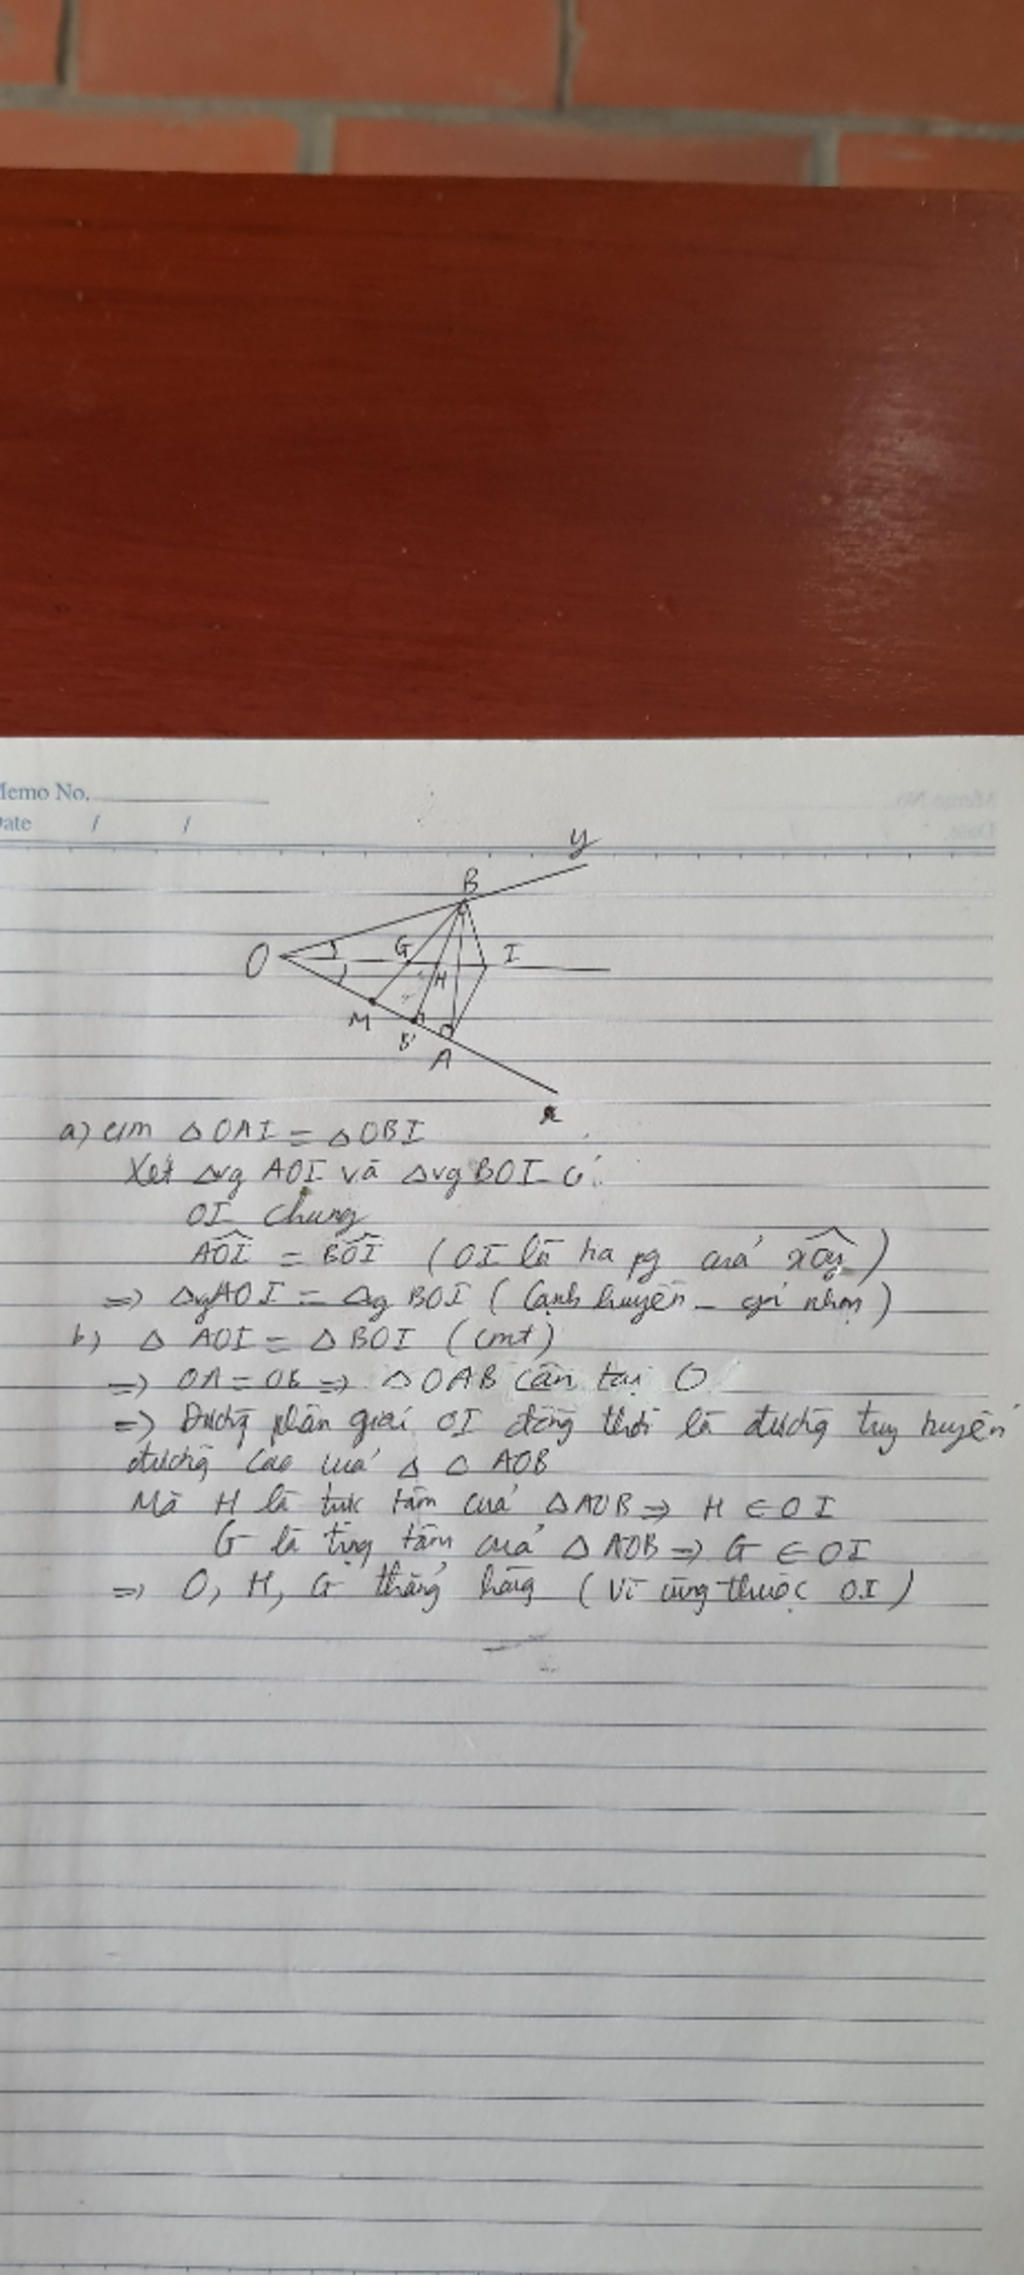 Memo No.
Date / /
y
B
O G I
H
M
B'
A
x
a) cm △OAI = △OBI
Xét △vg AOI và △vg BOI có:
OI chung
AOI = BOI (OI là tia pg của xOy)
=> △vg AOI = △vg BOI (Cạnh huyền - góc nhọn)
b) △ AOI = △ BOI (cmt)
=> OA = OB => △OAB cân tại O
=> Đường phân giác OI đồng thời là đường trung tuyến
đường cao của △ △ AOB
Mà H là trực tâm của △AOB => H ∈ OI
G là trọng tâm của △ AOB => G ∈ OI
=> O, H, G thẳng hàng (Vì cùng thuộc OI)